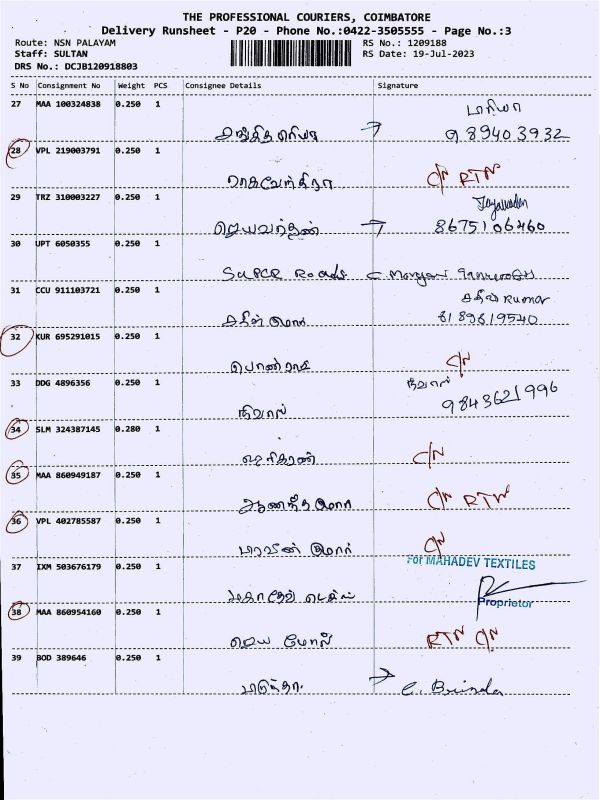 THE PROFESSIONAL COURIERS, COIMBATORE
Delivery Runsheet - P20 - Phone No.:0422-3505555 - Page No.:3
Route: NSN PALAYAM RS No.: 1209188
Staff: SULTAN RS Date: 19-Jul-2023
DRS No.: DCJB120918803
S No Consignment No Weight PCS Consignee Details Signature
27 MAA 100324838 0.250 1
மரியா
989403932
28 VPL 219003791 0.250 1
ராகவேந்திரா C/N RTN
29 TRZ 310003227 0.250 1
Jayavadan
ஜெயவர்தன் 8675106460
30 UPT 6050355 0.250 1
SUPER Roads
31 CCU 911103721 0.250 1
Kumar
8189619540
32 KUR 695291015 0.250 1
C/N
33 DDG 4896356 0.250 1
நிவாஸ்
நிவாஸ் 9843621996
34 SLM 324387145 0.280 1
ஹரிகரன் C/N
35 MAA 860949187 0.250 1
ஆனந்த குமார் C/N RTN
36 VPL 402785587 0.250 1
பிரவீன் குமார் C/N
For MAHADEV TEXTILES
37 IXM 503676179 0.250 1
Proprietor
38 MAA 860954160 0.250 1
ஜெய RTN C/N
39 BOD 389646 0.250 1
C. Brinda